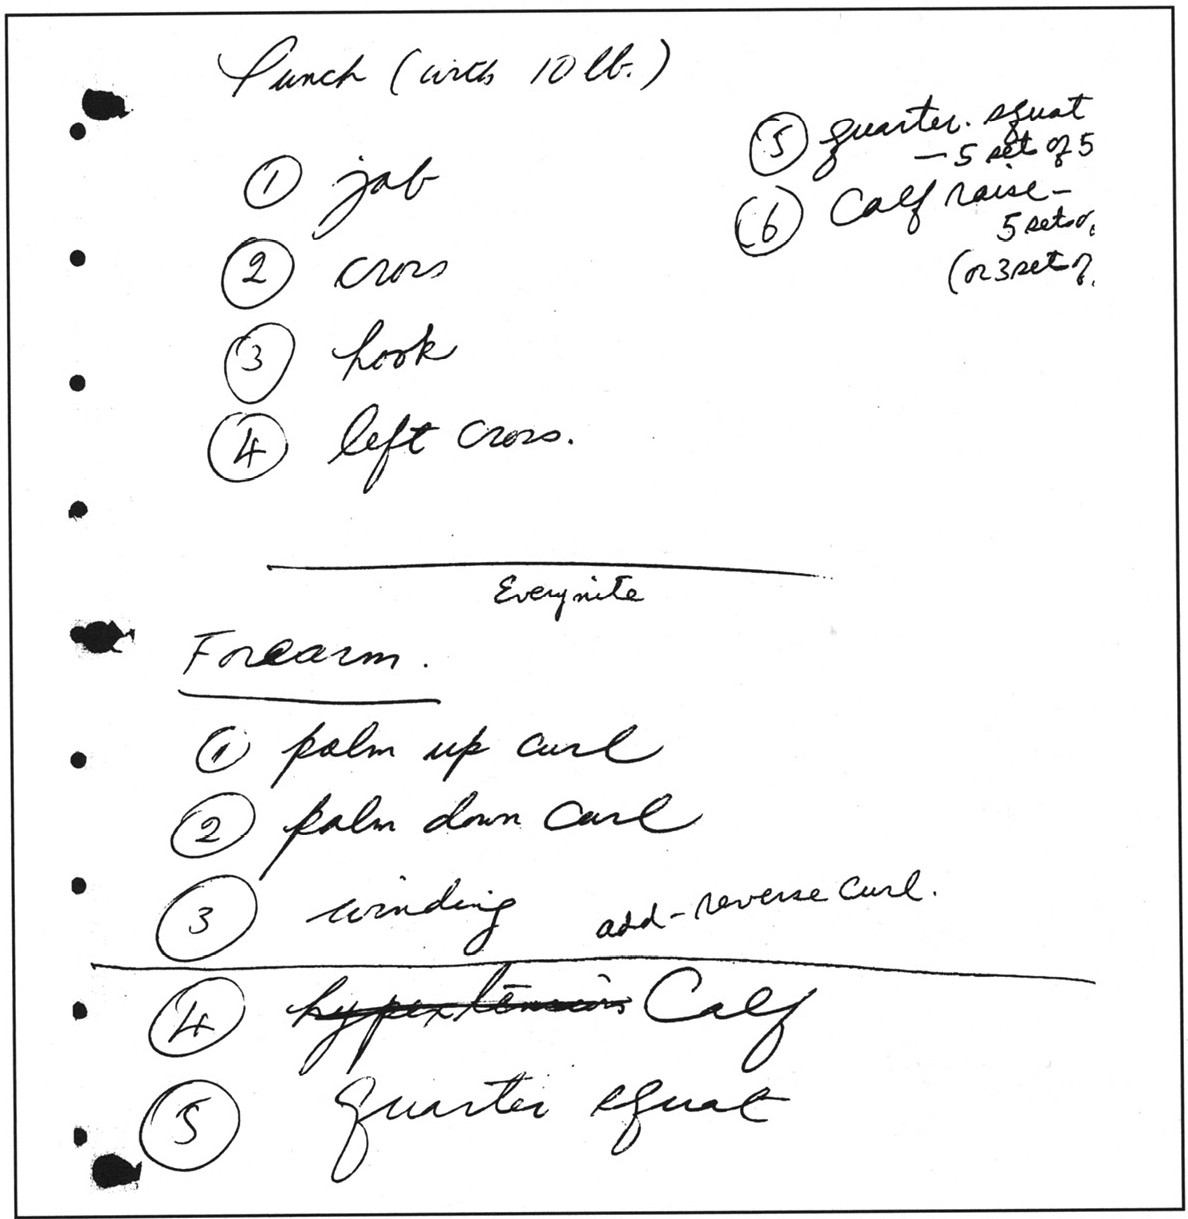 Punch (with 10 lb.)
① jab
② cross
③ hook
④ left cross.
⑤ quarter squat
— 5 set of 5
⑥ Calf raise —
5 sets of
(or 3 set of
Everynite
Forearm.
① palm up curl
② palm down curl
③ winding add - reverse curl.
④ hypextensions Calf
⑤ quarter squat